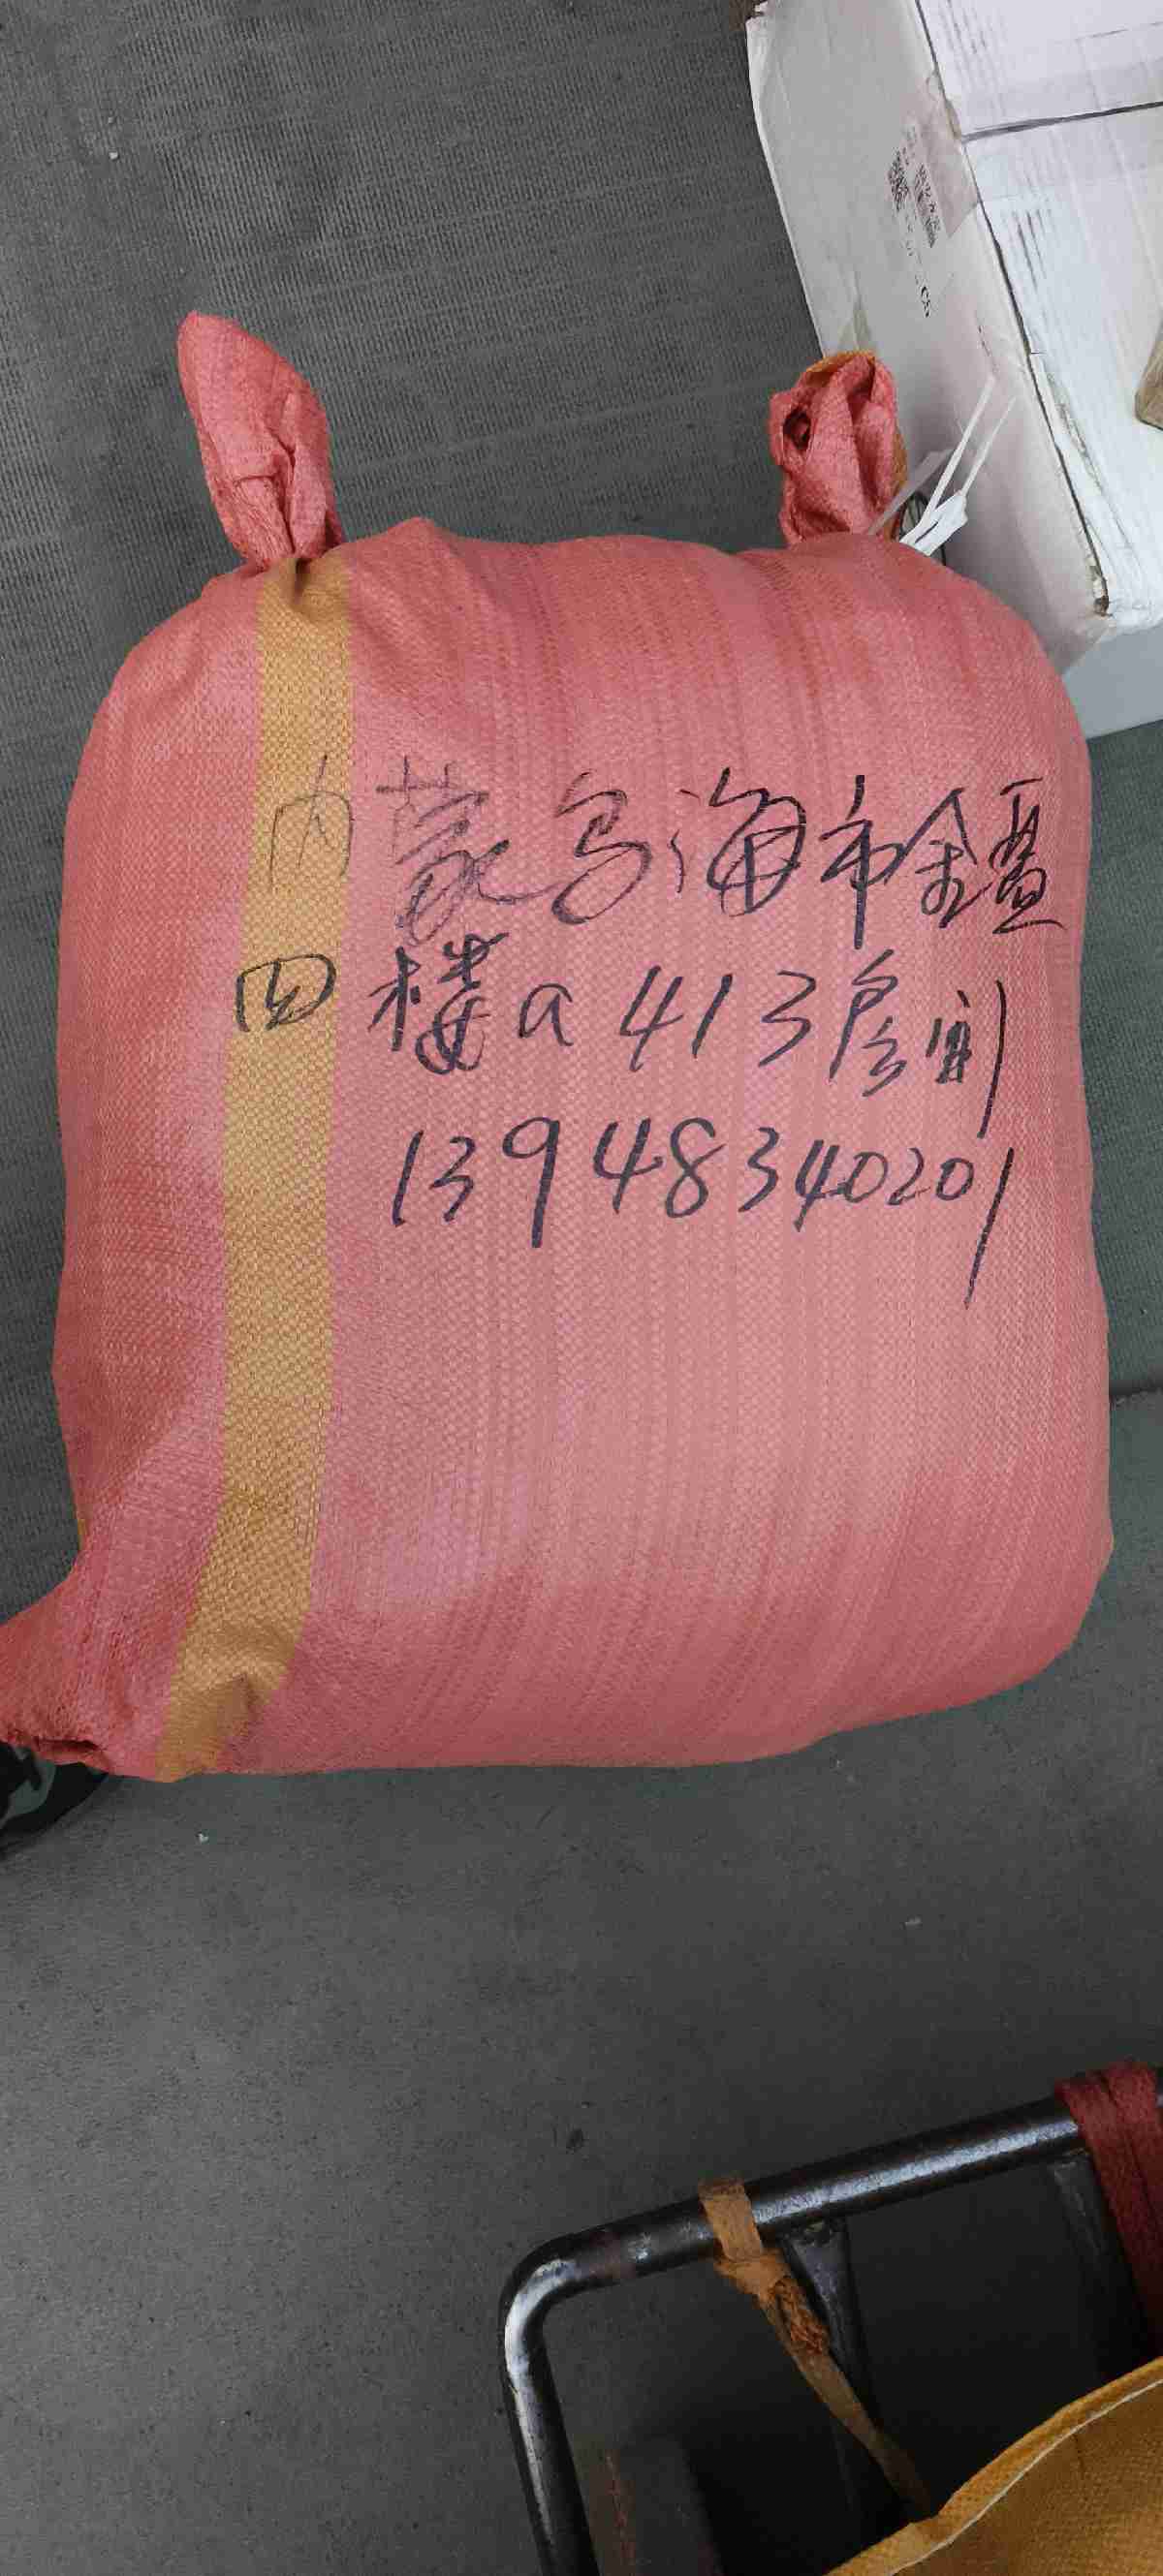 内蒙乌海市金
四楼a413房间
13948340201